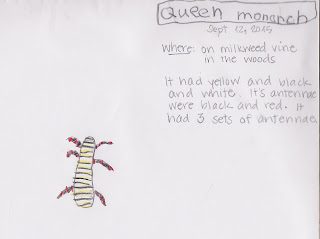 Queen monarch
Sept 12, 2015
Where: on milkweed vine
in the woods
It had yellow and black
and white. It's antennae
were black and red. It
had 3 sets of antennae.